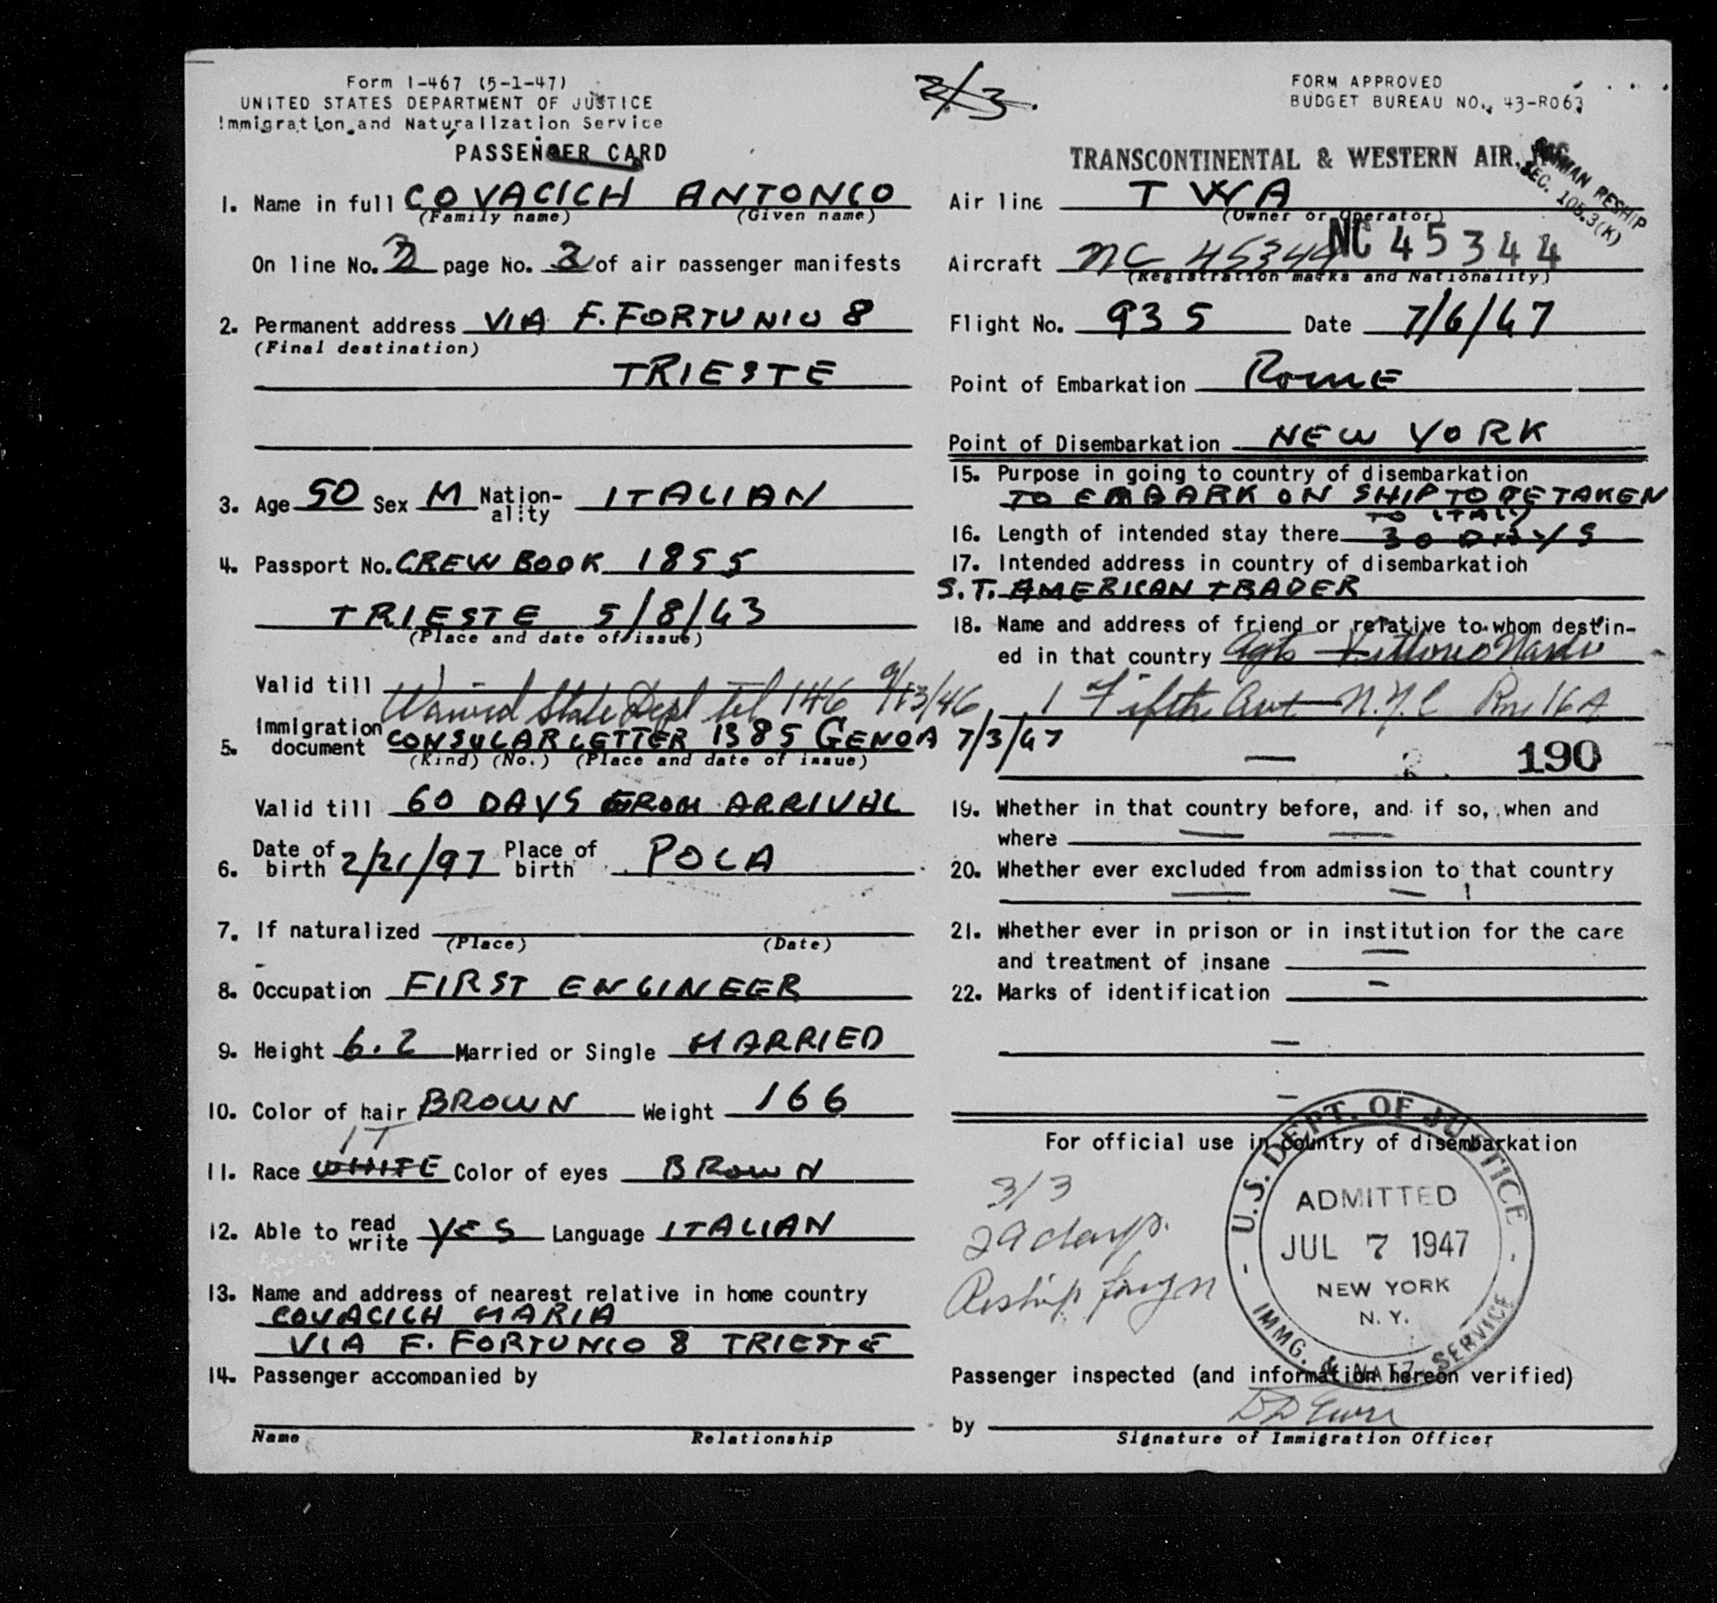 Form I-467 (5-1-47)
UNITED STATES DEPARTMENT OF JUSTICE
Immigration and Naturalization Service
PASSENGER CARD
1. Name in full COVACICH ANTONIO
(Family name) (Given name)
On line No. page No. of air passenger manifests
2. Permanent address VIA F. FORTUNIO 8
(Final destination)
TRIESTE
3. Age 50 Sex M Nation-
ality ITALIAN
4. Passport No. CREW BOOK 1855
TRIESTE 5/8/43
(Place and date of issue)
Valid till Waived State Dept tel 146 9/13/46
5. Immigration
document CONSULAR LETTER 1385 GENOA 7/3/47
(Kind) (No.) (Place and date of issue)
Valid till 60 DAYS FROM ARRIVAL
6. Date of
birth 2/21/97 Place of
birth POLA
7. If naturalized
(Place) (Date)
8. Occupation FIRST ENGINEER
9. Height 6.2 Married or Single MARRIED
10. Color of hair BROWN Weight 166
IT
11. Race WHITE Color of eyes BROWN
12. Able to read
write YES Language ITALIAN
13. Name and address of nearest relative in home country
COVACICH MARIA
VIA F. FORTUNIO 8 TRIESTE
14. Passenger accompanied by
Name Relationship
2/3.
FORM APPROVED
BUDGET BUREAU NO. 43-R063
TRANSCONTINENTAL & WESTERN AIR, INC.
SEAMAN RESHIP
SEC. 105.3(K)
Air line TWA
(Owner or Operator)
Aircraft NC 45344 NC 45344
(Registration marks and Nationality)
Flight No. 935 Date 7/6/47
Point of Embarkation ROME
Point of Disembarkation NEW YORK
15. Purpose in going to country of disembarkation
TO EMBARK ON SHIP TO BE TAKEN
TO ITALY
16. Length of intended stay there 30 DAYS
17. Intended address in country of disembarkation
S.T. AMERICAN TRADER
18. Name and address of friend or relative to whom destin-
ed in that country Agts Vittorio
1 Fifth Ave N.Y.C Rm 16A
— 190
19. Whether in that country before, and if so, when and
where — —
20. Whether ever excluded from admission to that country
— —
21. Whether ever in prison or in institution for the care
and treatment of insane —
22. Marks of identification —
—
—
For official use in country of disembarkation
3/3
29 days.
Reship foreign
U.S. DEPT. OF JUSTICE
ADMITTED
JUL 7 1947
NEW YORK
N.Y.
IMMG. & NATZ. SERVICE
Passenger inspected (and information hereon verified)
by
Signature of Immigration Officer